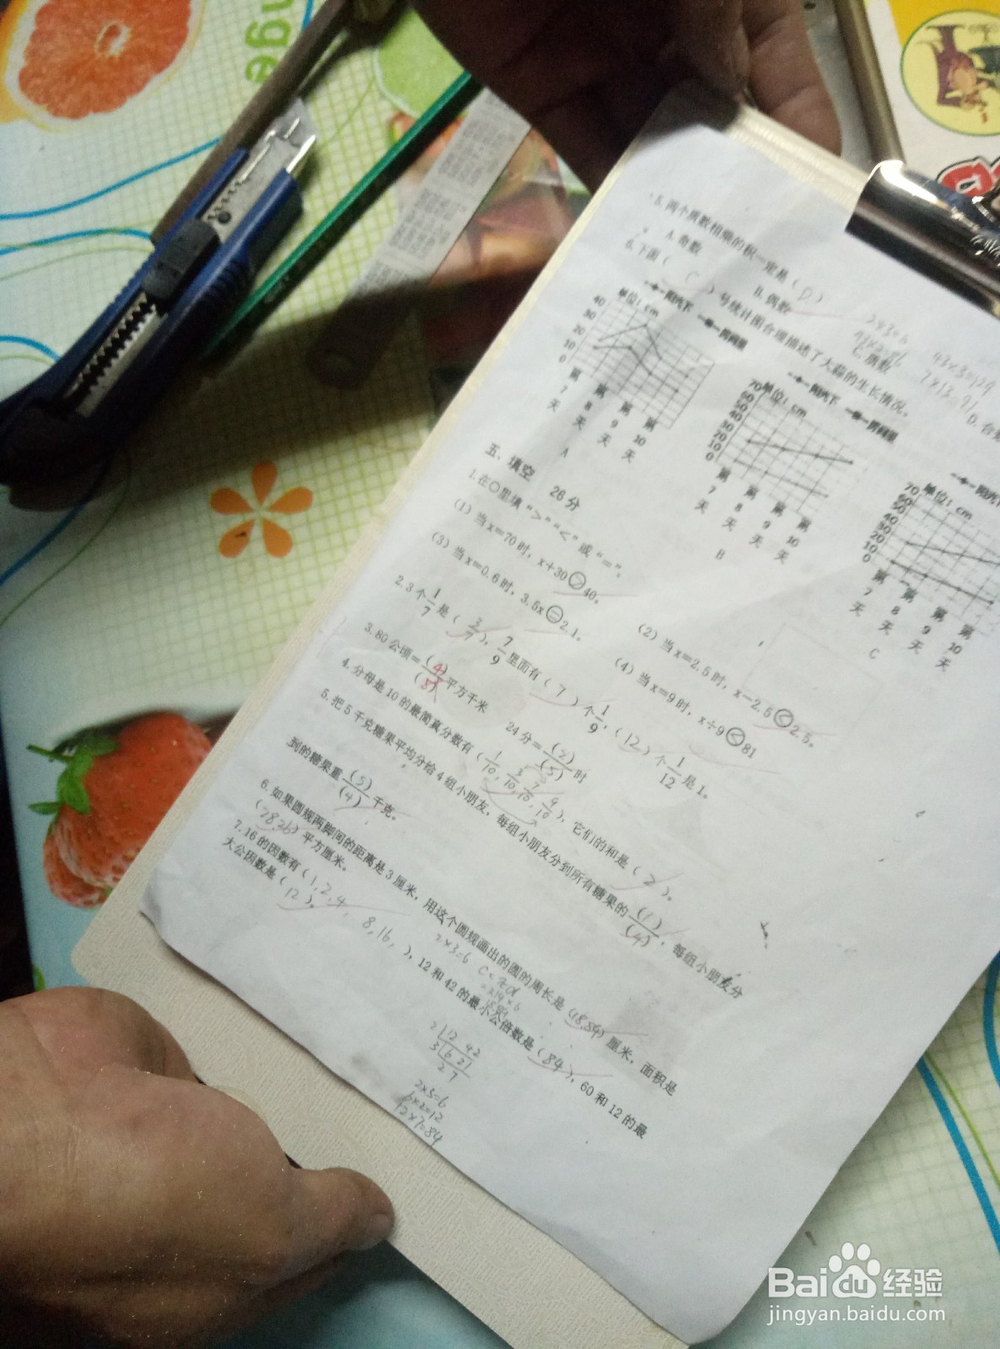 5.两个质数相乘的积一定是(D)
A.奇数 B.偶数 C.质数 D.合
2×3=6
43×3=129
7×13=91
6.下面(C)号统计图合理描述了大蒜的生长情况。
阳内下
单位:cm
40
30
20
10
0
第7天 第8天 第9天 第10天
A
单位:cm
70
60
50
40
30
20
10
0
第7天 第8天 第9天 第10天
B
单位:cm
70
60
50
40
30
20
10
0
第7天 第8天 第9天 第10天
C
五、填空 26分
1.在○里填“>”“<”或“=”。
(1)当x=70时,x+30>40。 (2)当x=2.5时,x-2.5<2.5。
(3)当x=0.6时,3.5x=2.1。 (4)当x=9时,x÷9<81
2.3个1/7是(3/7),7/9里面有(7)个1/9,(12)个1/12是1。
3.80公顷=(4)/(5)平方千米 24分=(2)/(5)时
4.分母是10的最简真分数有(1/10,3/10,7/10,9/10),它们的和是(2)。
5.把5千克糖果平均分给4组小朋友,每组小朋友分到所有糖果的(1)/(4),每组小朋友分
到的糖果重(5)/(4)千克。
6.如果圆规两脚间的距离是3厘米,用这个圆规画出的圆的周长是(18.84)厘米,面积是
(28.26)平方厘米。
2×3=6
7.16的因数有(1,2,4,8,16,),12和42的最小公倍数是(84),60和12的最
大公因数是(12)。
2 12 42
3 6 21
2 7
2×3=6
6×2=12
12×7=84
Baidu经验
jingyan.baidu.com